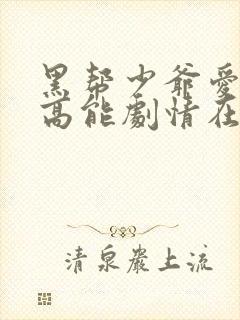 黑帮少爷愛
高能劇情在
清泉巖上流